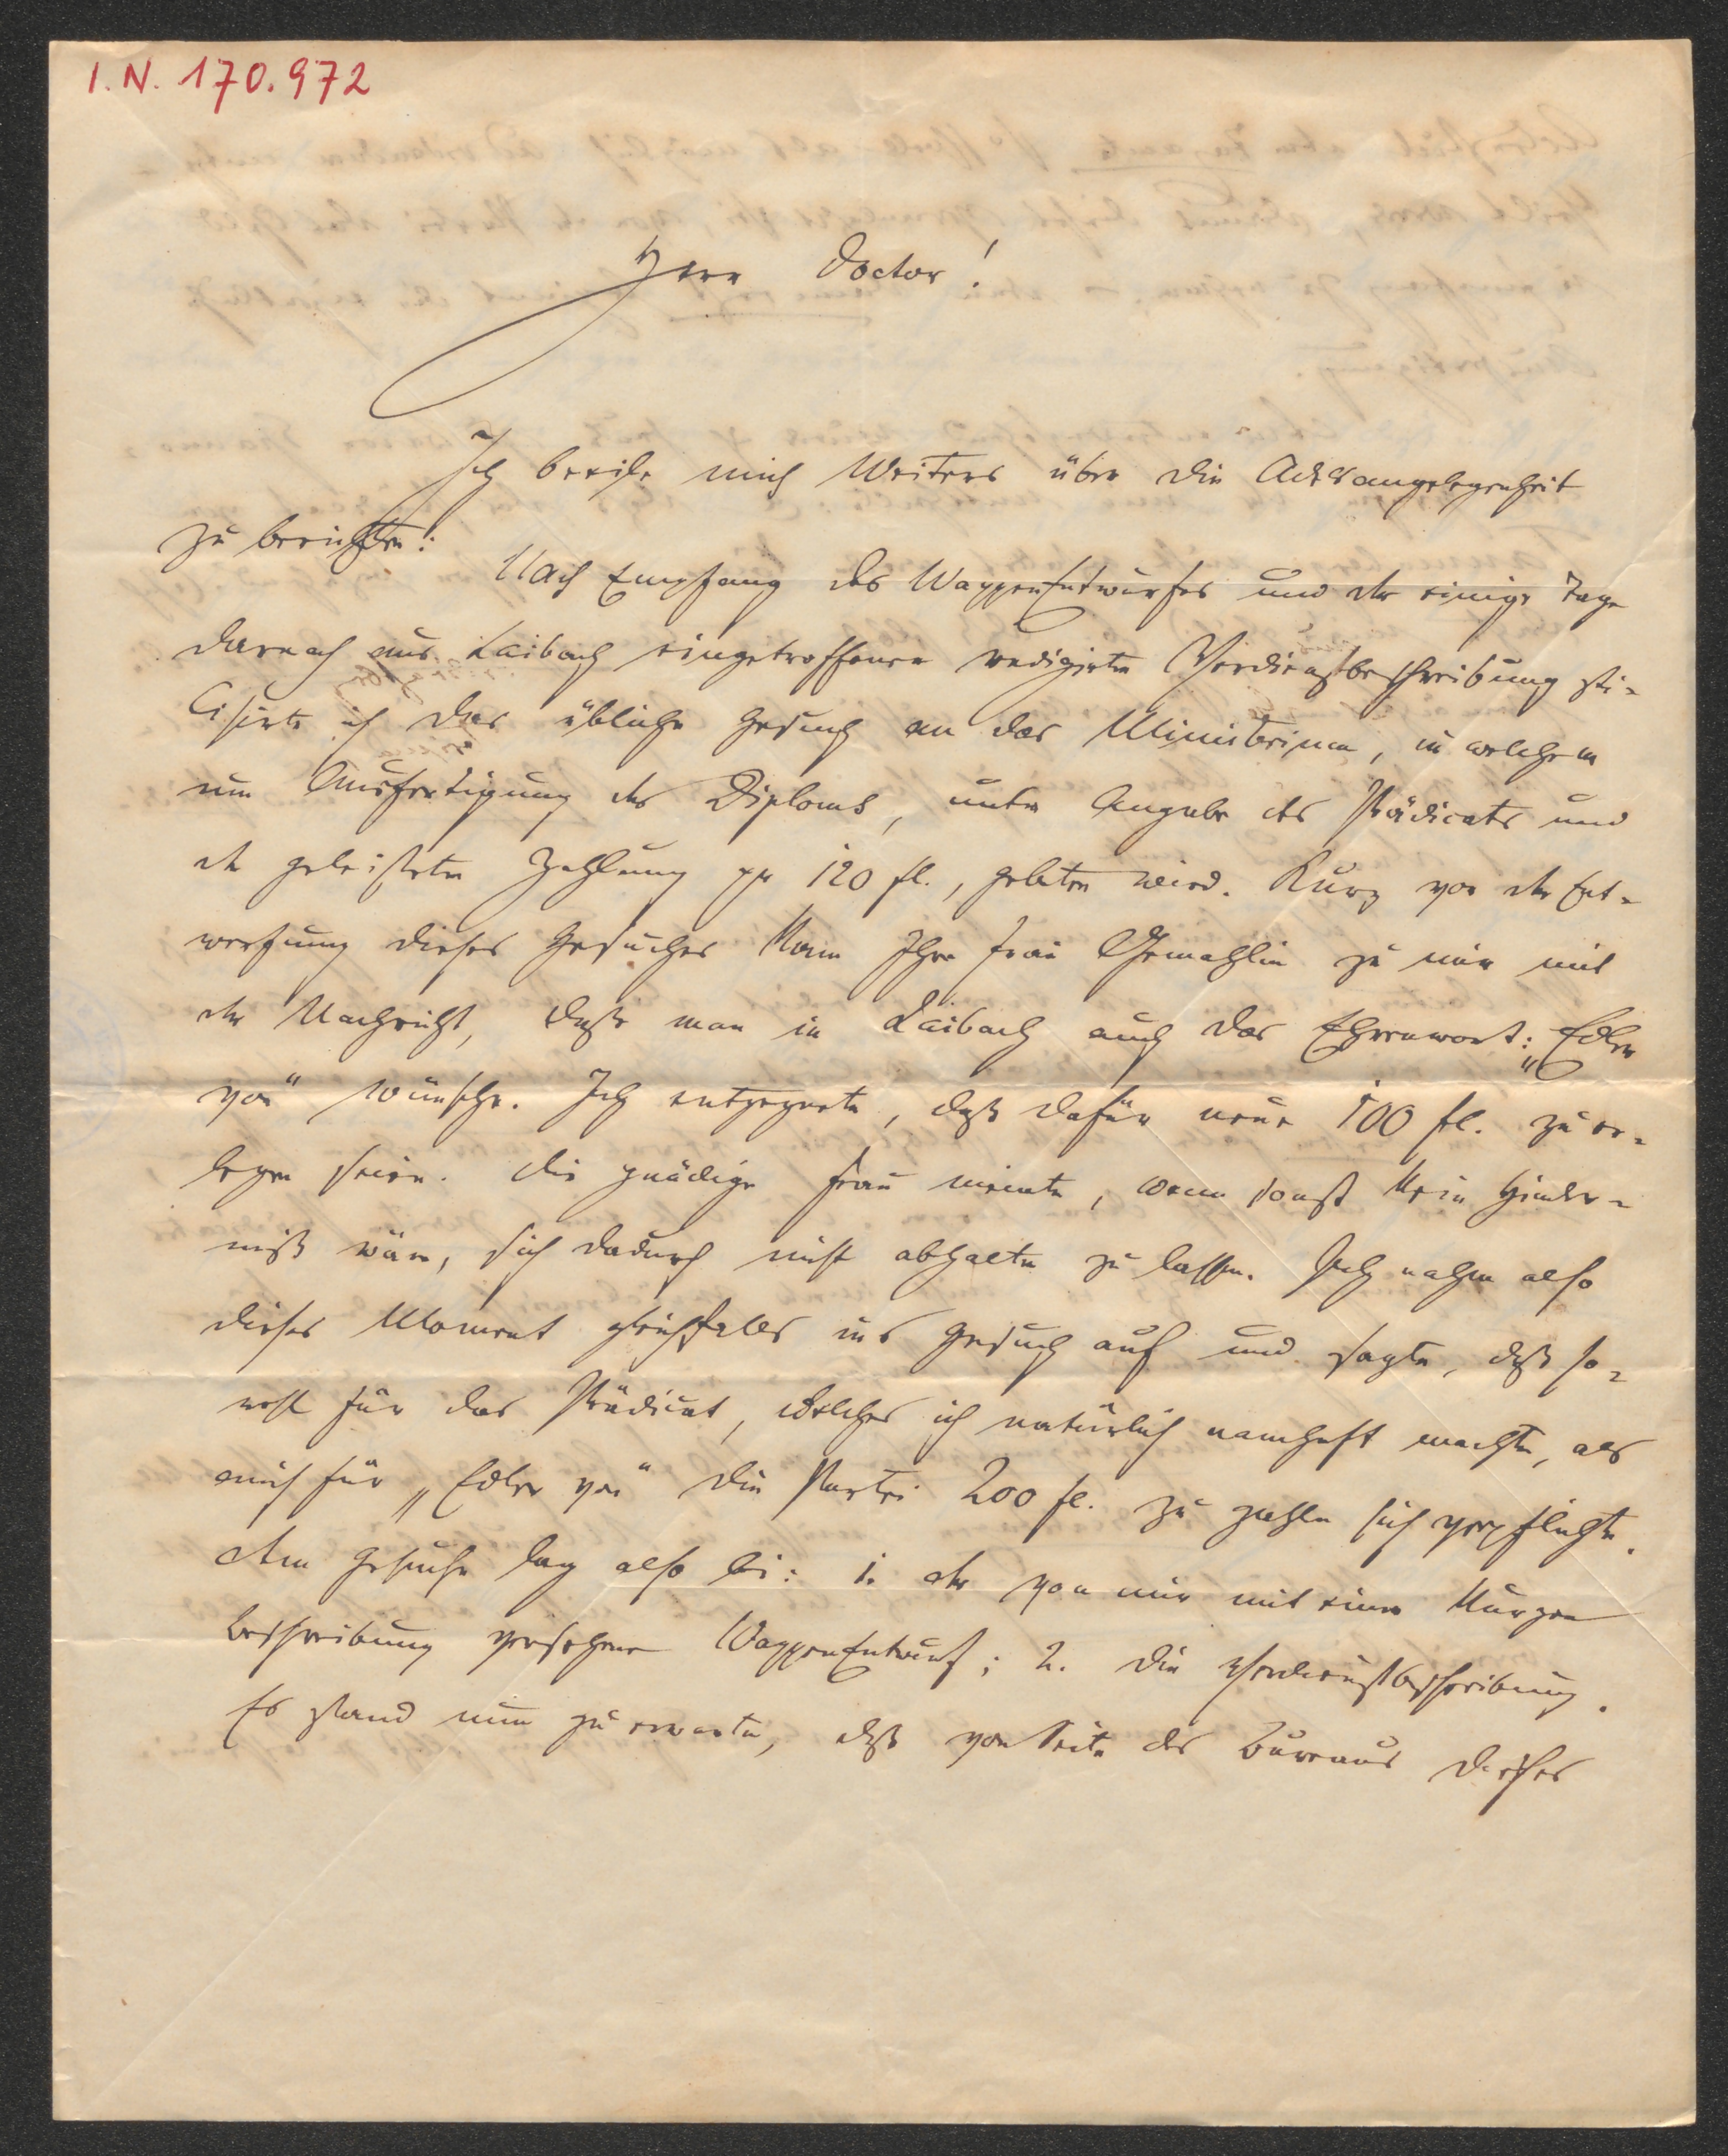 I. N. 170.972
Herr Doctor!
Ich beeile mich Weiteres über die Adelsangelegenheit
zu berichten:
Nach Empfang des WappenEntwurfes und der einige Tage
darnach aus Laibach eingetroffenen redigirten Verdienstbeschreibung sti-
lisirte ich das übliche Gesuch an das Ministerium, in welchem
um Ausfertigung des Diploms, unter Angabe des Prädicats und
der geleisteten Zahlung pr 120 fl., gebeten wird. Kurz vor der Ent-
werfung dieses Gesuches kam Ihre Frau Gemahlin zu mir mit
der Nachricht, daß man in Laibach auch das Ehrenwort: „Edler
von“ wünsche. Ich entgegnete, daß dafür neue 100 fl. zu er-
legen seien. Die gnädige Frau meinte, wenn sonst kein Hinder-
niß wäre, sich dadurch nicht abhalten zu lassen. Ich nahm also
dieses Moment gleichfalls ins Gesuch auf und sagte, daß so-
wohl für das Prädicat, welches ich natürlich namhaft machte, als
auch für „Edler von“ die Partei 200 fl. zu zahlen sich verpflichte.
Dem Gesuche lag also bei: 1. der von mir mit einer kurzen
Beschreibung versehene WappenEntwurf; 2. die Verdienstbeschreibung.
Es stand nun zu erwarten, daß von Seite des Bureaus dieses